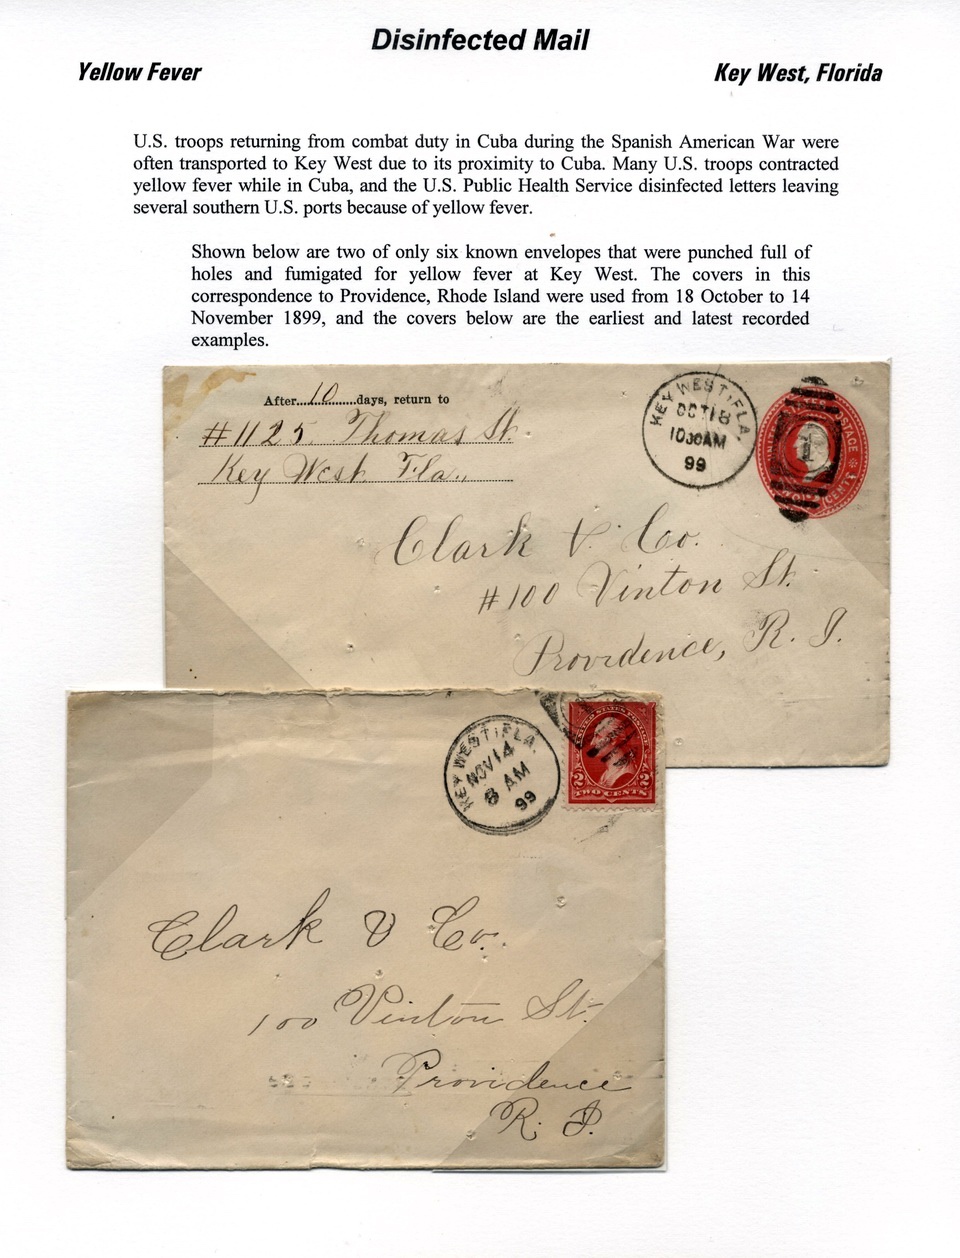 Disinfected Mail
Yellow Fever
Key West, Florida
U.S. troops returning from combat duty in Cuba during the Spanish American War were
often transported to Key West due to its proximity to Cuba. Many U.S. troops contracted
yellow fever while in Cuba, and the U.S. Public Health Service disinfected letters leaving
several southern U.S. ports because of yellow fever.
Shown below are two of only six known envelopes that were punched full of
holes and fumigated for yellow fever at Key West. The covers in this
correspondence to Providence, Rhode Island were used from 18 October to 14
November 1899, and the covers below are the earliest and latest recorded
examples.
After....10........days, return to
#1125. Thomas St.
Key West Fla.,
KEY WEST, FLA.
OCT 18
1030AM
99
POSTAGE
CENTS
Clark & Co.
#100 Vinton St.
Providence, R. I.
KEY WEST, FLA.
NOV 14
8 AM
99
UNITED STATES POSTAGE
2 2
TWO CENTS
Clark & Co.
100 Vinton St.
Providence
R. I.